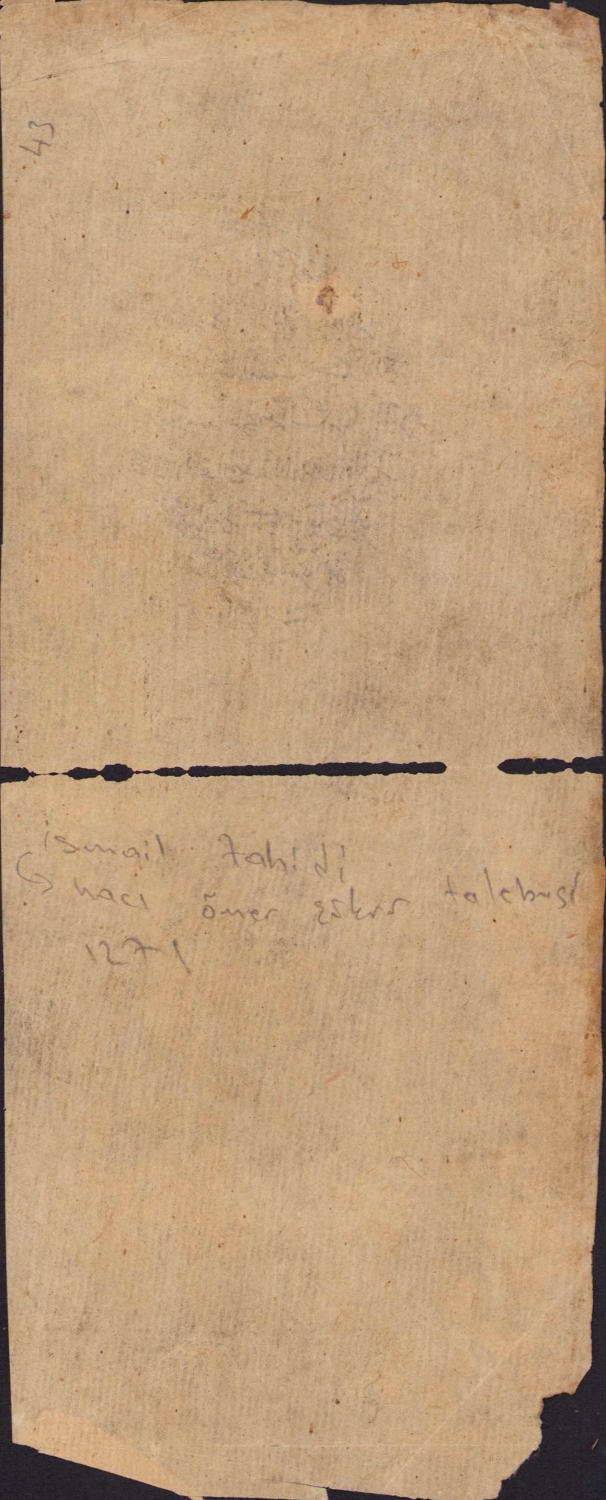 43
ismail Zahidi
hacı ömer şükrü talebesi
1271